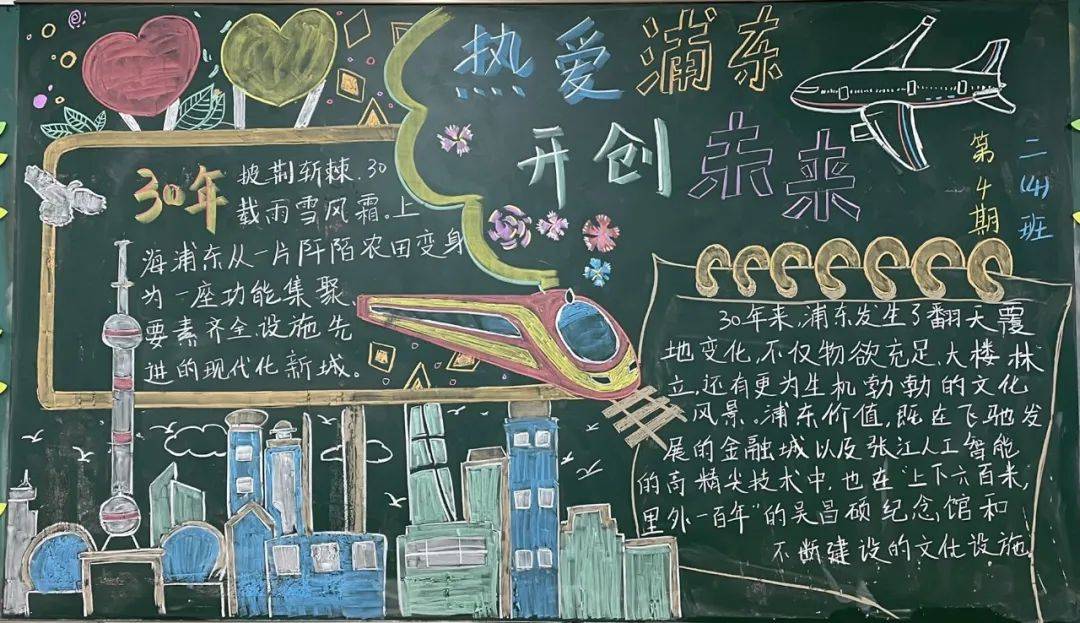 热爱浦东
开创未来
第4期
二(4)班
30年 披荆斩棘.30
载雨雪风霜。上
海浦东从一片阡陌农田变身
为一座功能集聚、
要素齐全、设施先
进的现代化新城。
30年来,浦东发生了翻天覆
地变化,不仅物欲充足,大楼林
立,还有更为生机勃勃的文化
风景。浦东价值,既在飞驰发
展的金融城以及张江人工智能
的高精尖技术中,也在"上下六百米,
里外一百年"的吴昌硕纪念馆和
不断建设的文化设施。